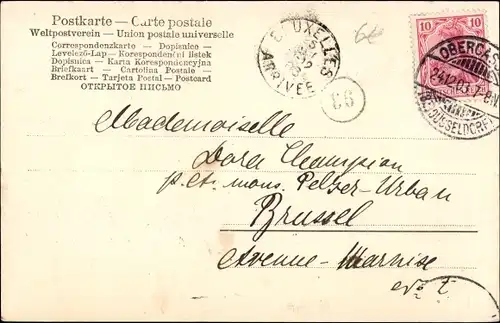 Postkarte — Carte postale
Weltpostverein — Union postale universelle
Correspondenzkarte - Dopisnice -
Levelező-Lap — Korespondenční listek
Dopisnica - Karta Korespondencyjna
Briefkaart - Cartolina Postale -
Brefkort - Tarjeta Postal - Postcard
ОТКРЫТОЕ ПИСЬМО
BRUXELLES
ARRIVÉE
10 10
OBERCASSEL
(BZ. DÜSSELDORF)
Mademoiselle
Dora Champion
p. Adr. mons. Pelzer-Urban
Brussel
Avenue